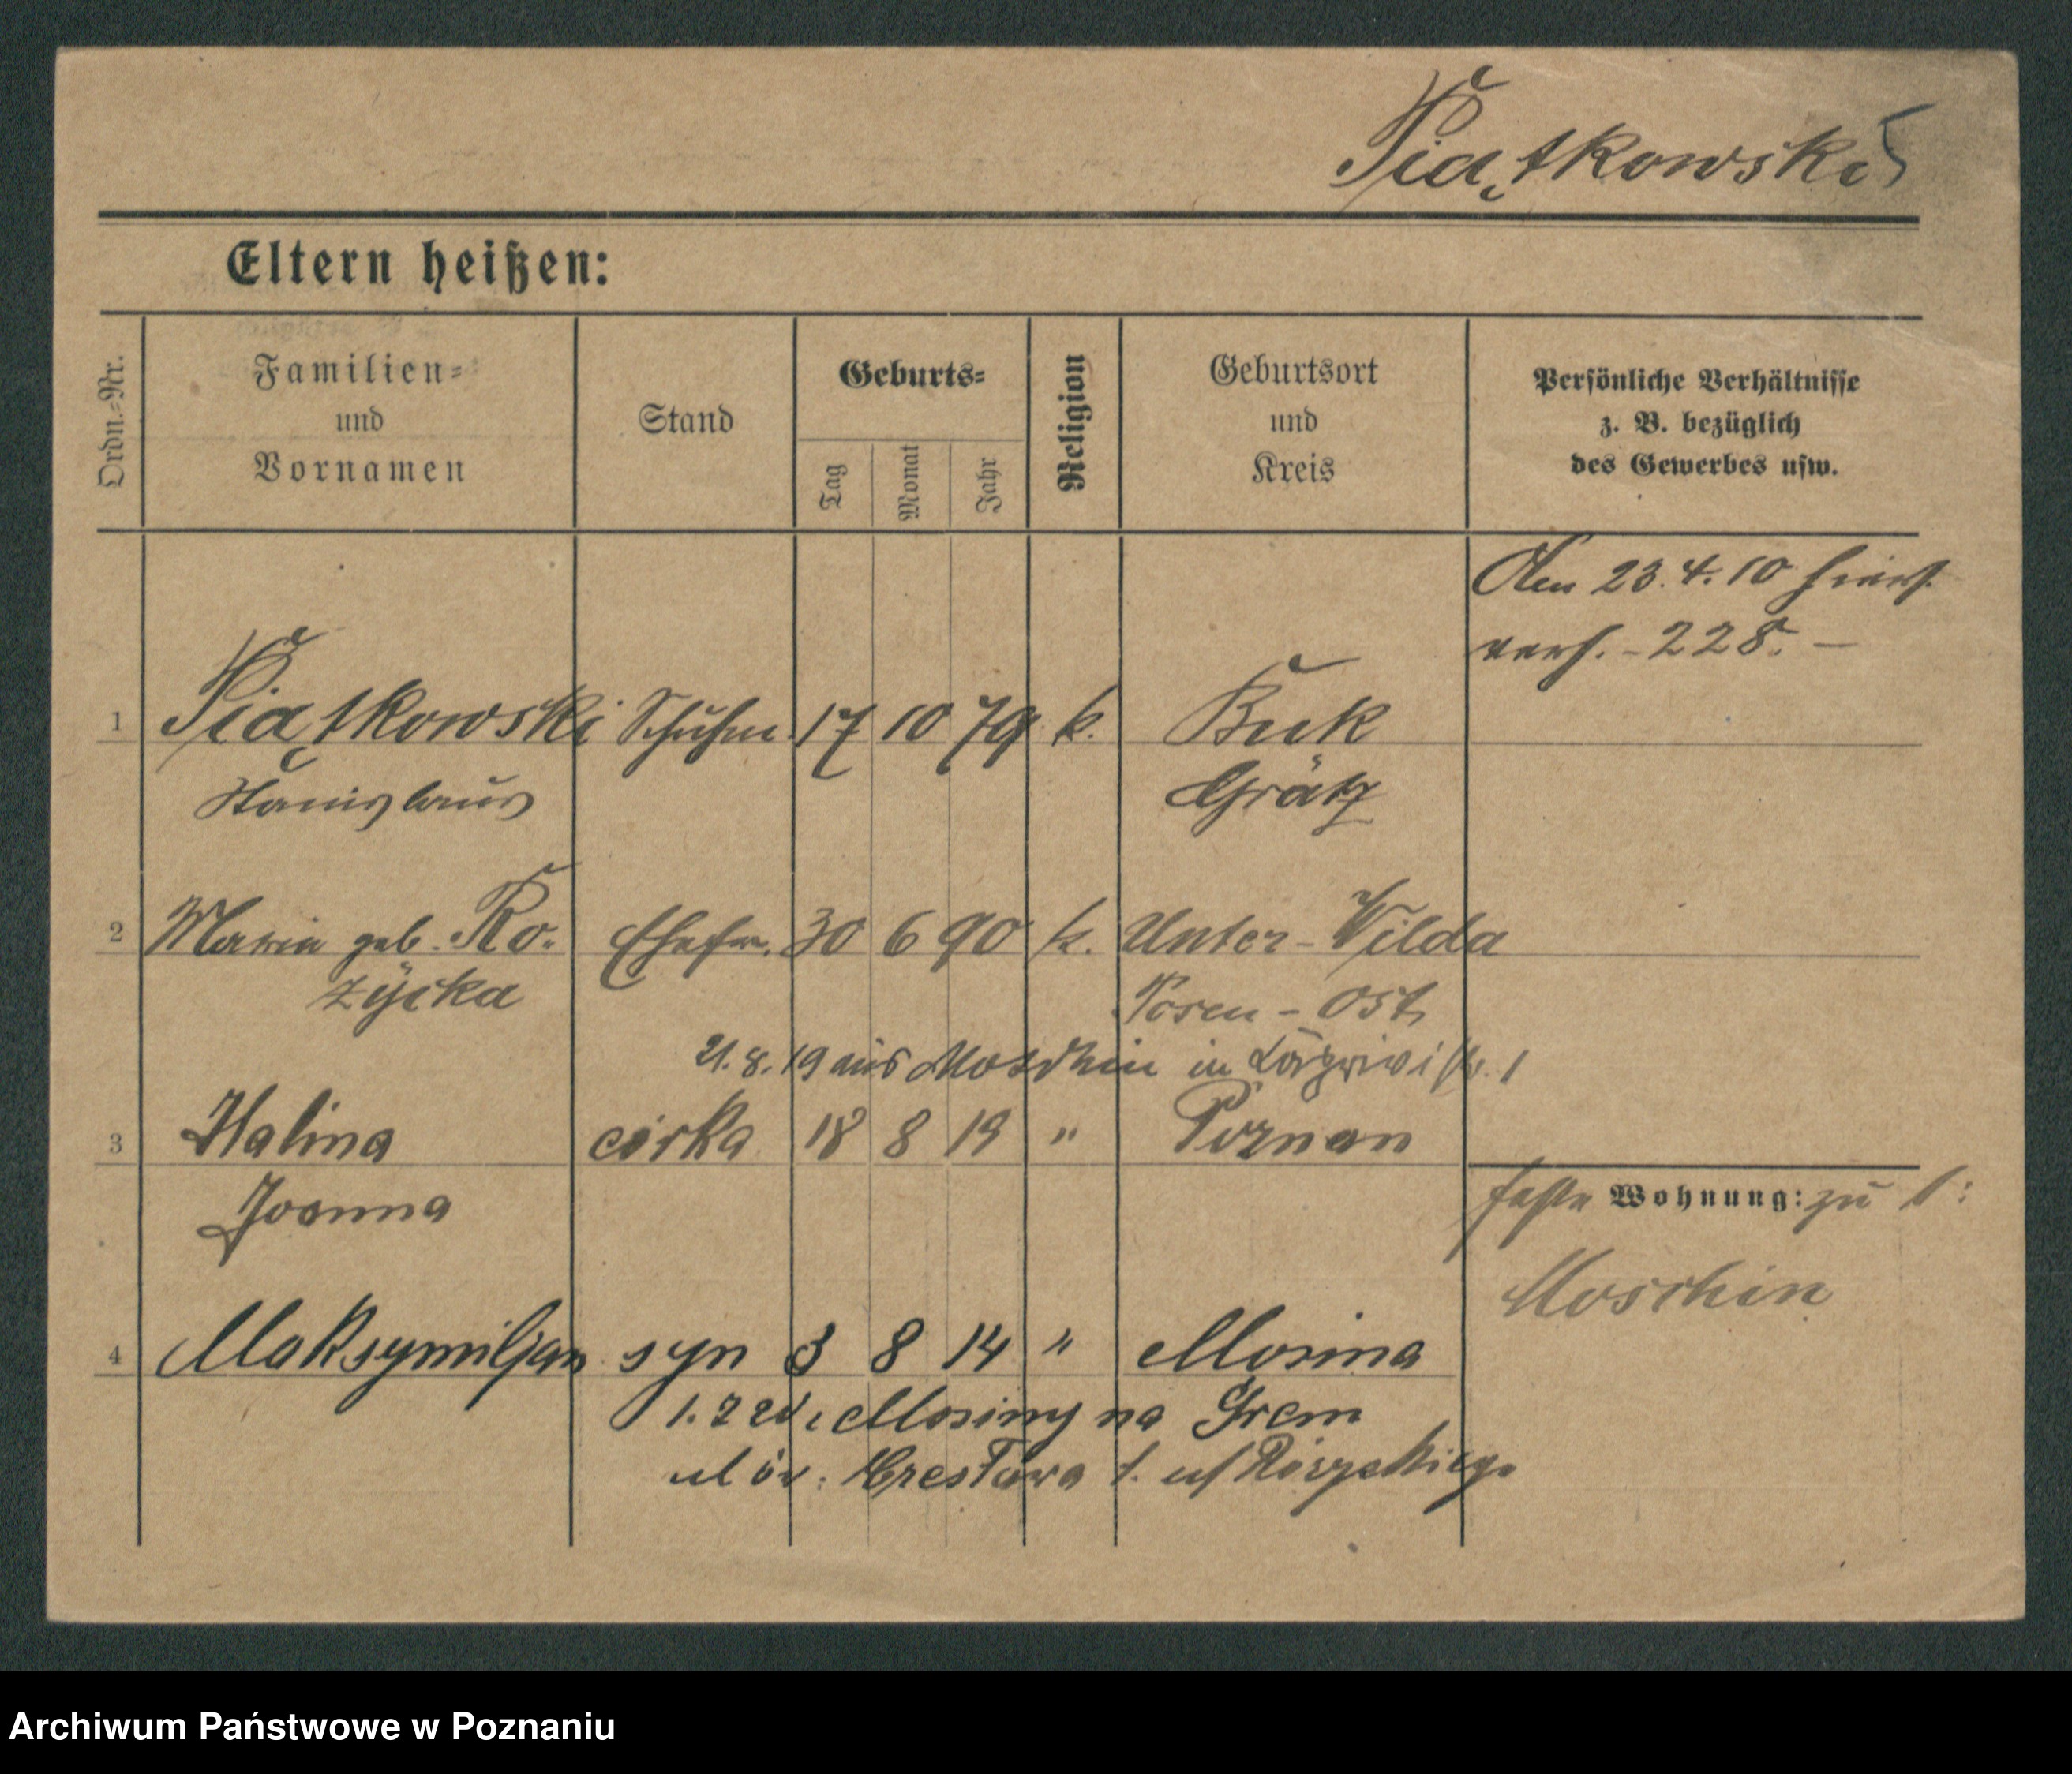 Piątkowski
Eltern heißen:
Ordn.-Nr.
Familien-
und
Vornamen
Stand
Geburts-
Tag
Monat
Jahr
Religion
Geburtsort
und
Kreis
Persönliche Verhältnisse
z. B. bezüglich
des Gewerbes usw.
Am 23. 4. 10 hiers.
verh. - 228. -
1 Piątkowski Schuhm. 17 10 79 k. Buk
Stanislaus Grätz
2 Maria geb. Ro- Ehefr. 30 6 90 k. Unter-Wilda
życka Posen - Ost
21. 8. 19 aus Moschin in
3 Halina córka 18 8 19 " Poznan
Joanna
feste Wohnung: zu 1:
Moschin
4 Maksymiljan syn 3 8 14 " Mosina
Mosiny na
ul św.
Archiwum Państwowe w Poznaniu